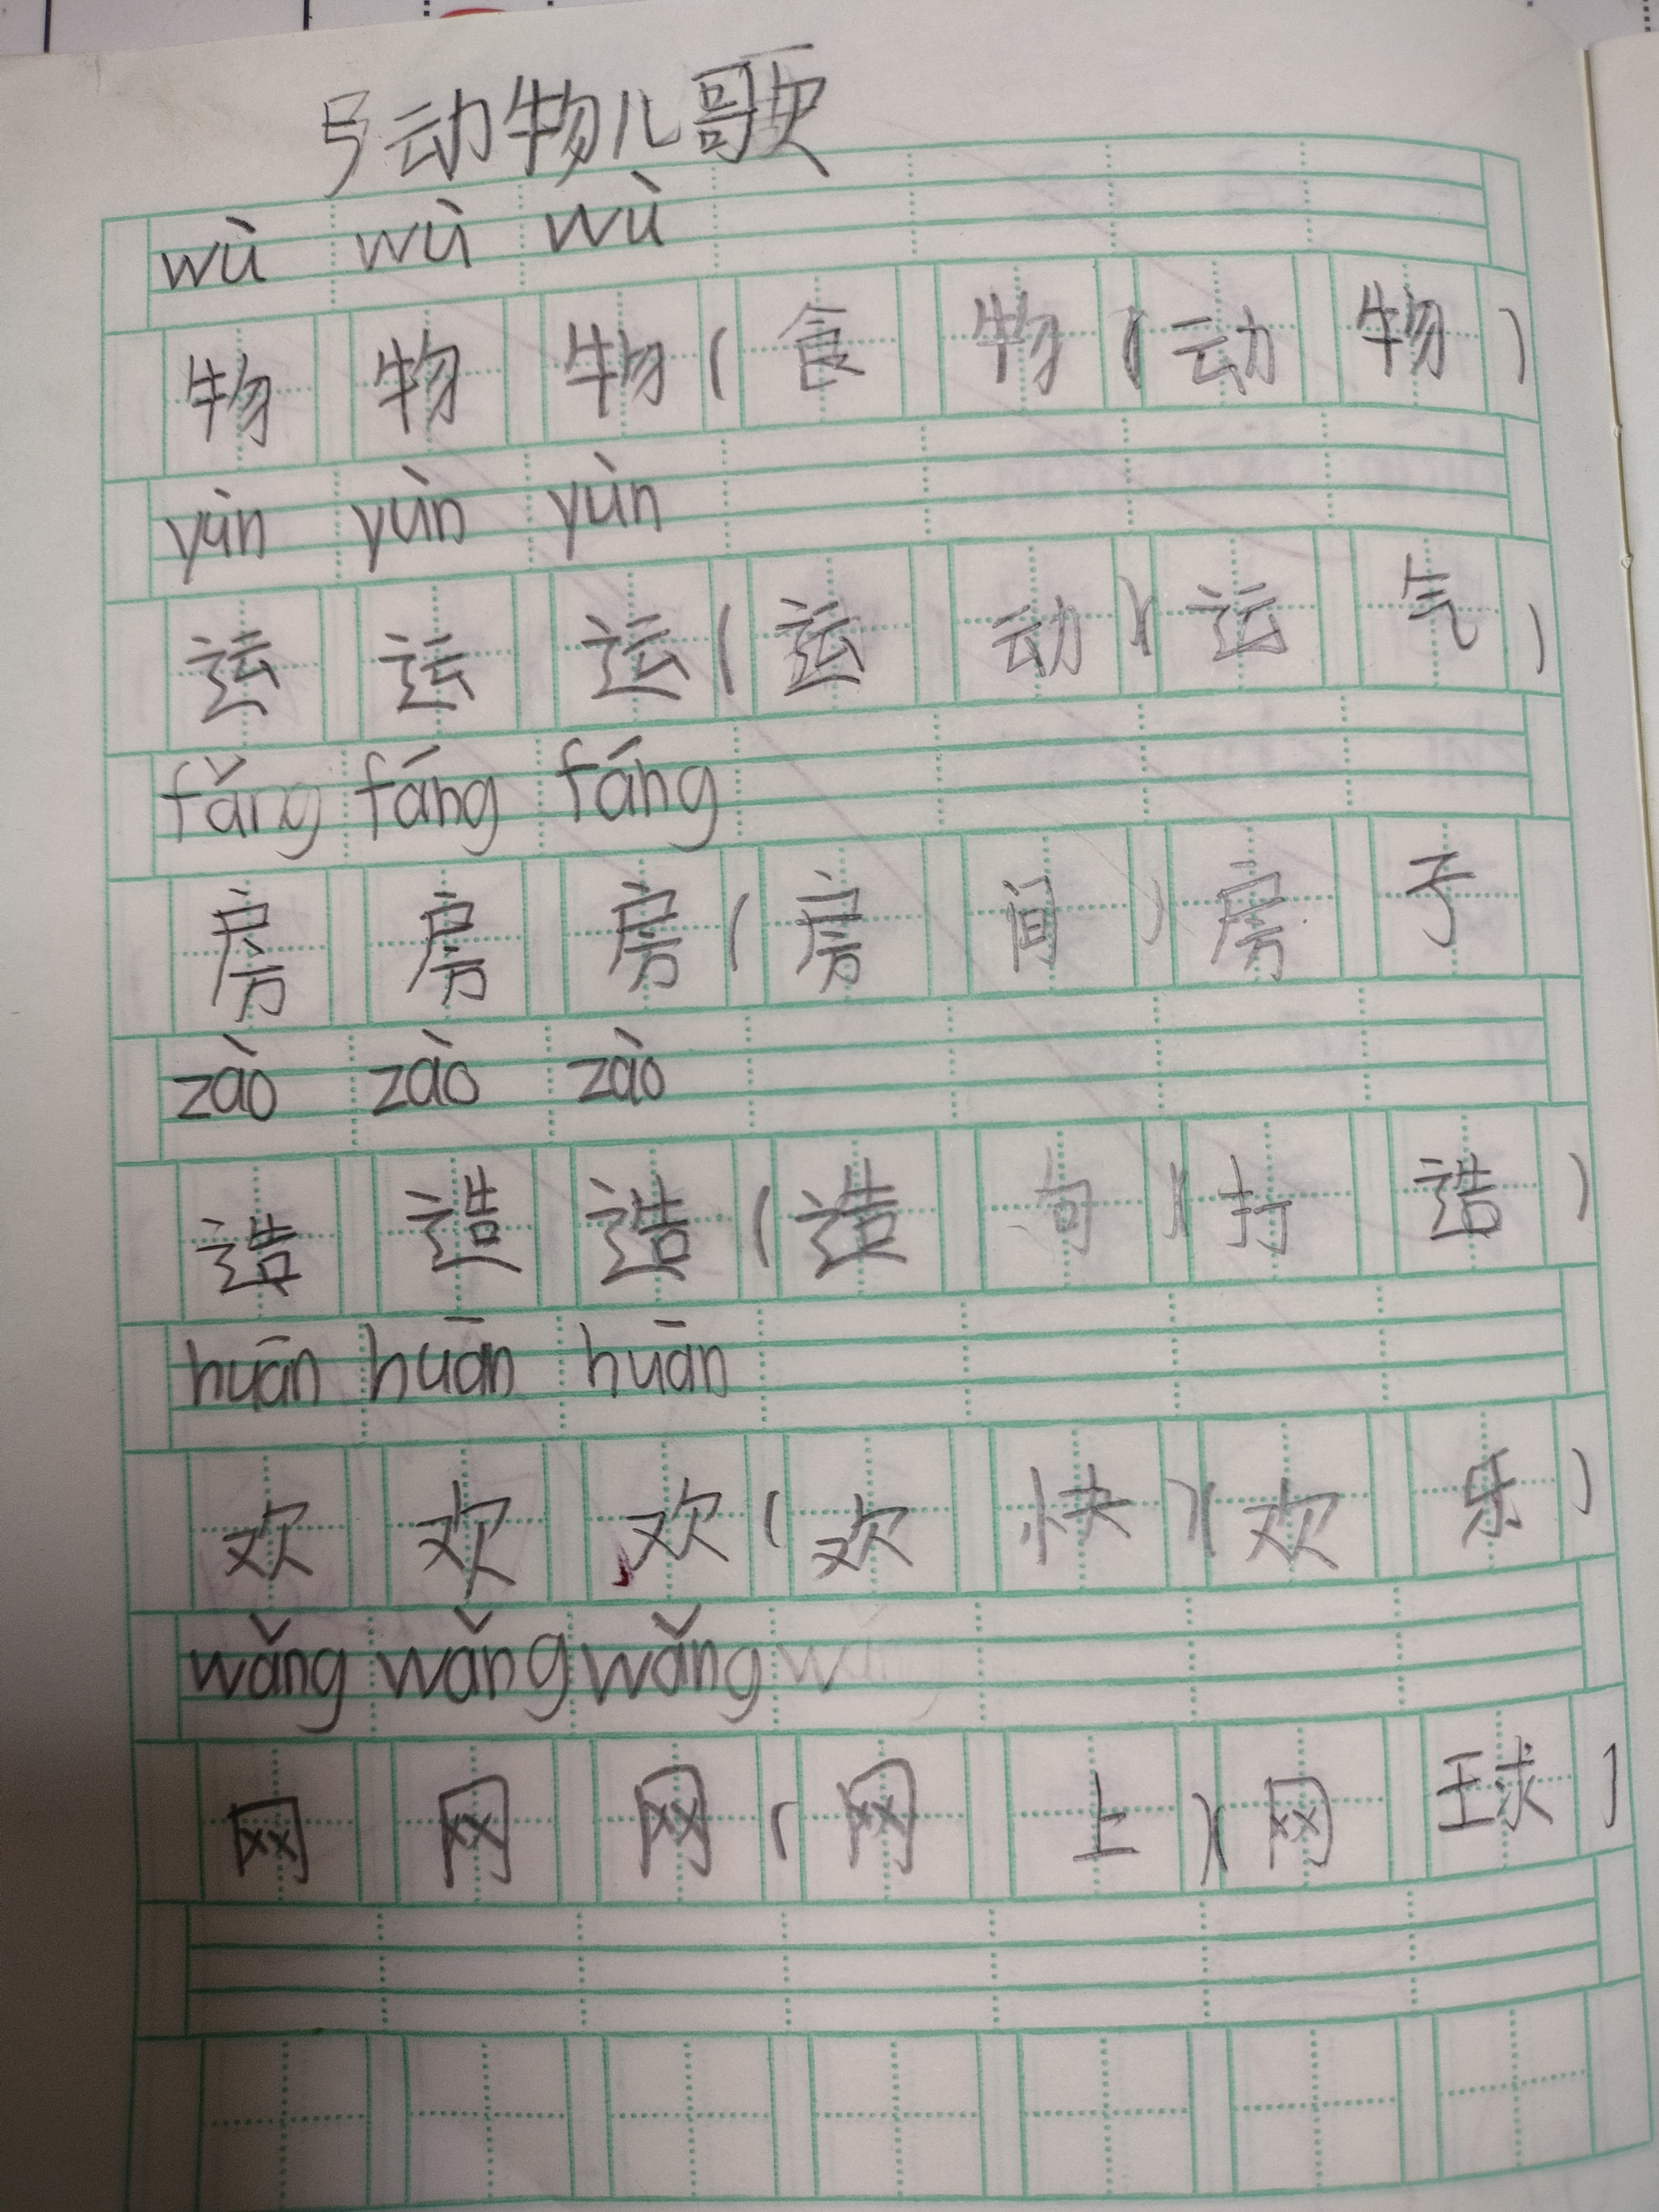 号动物儿歌
wù wù wù
物 物 物 ( 食 物 ) ( 动 物 )
yùn yùn yùn
运 运 运 ( 运 动 ) ( 运 气 )
fǎng fáng fáng
房 房 房 ( 房 间 ) 房 子
zào zào zào
造 造 造 ( 造 句 ) ( 打 造 )
huān huān huān
欢 欢 欢 ( 欢 快 ) ( 欢 乐 )
wǎng wǎng wǎng
网 网 网 ( 网 上 ) ( 网 球 )